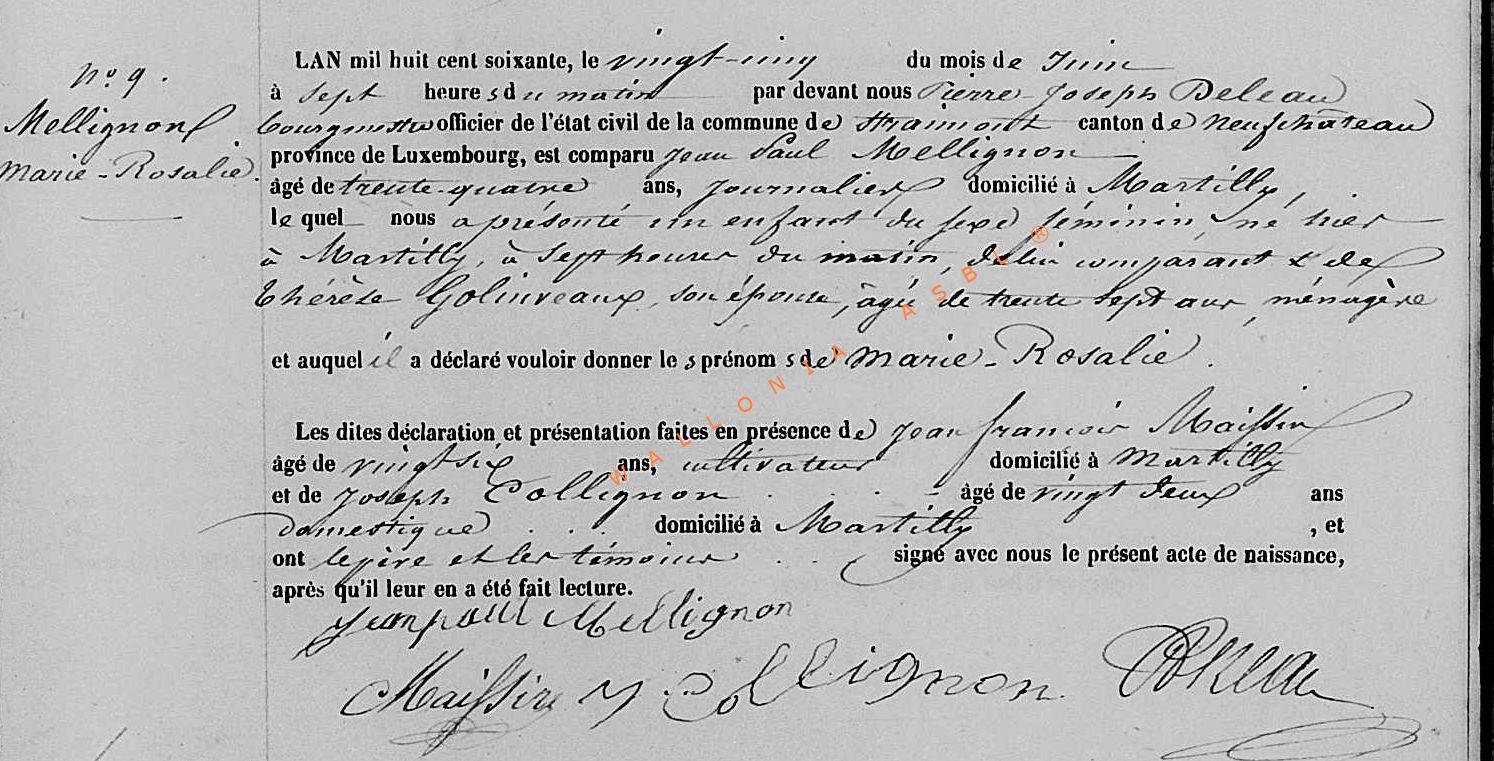 n° 9.
Mellignon
Marie-Rosalie.
LAN mil huit cent soixante, le vingt-cinq du mois de Juin
à sept heures du matin par devant nous Pierre-Joseph Deleau
bourgmestre officier de l'état civil de la commune de Straimont canton de Neufchateau
province de Luxembourg, est comparu Jean Paul Mellignon
âgé de trente-quatre ans, journalier domicilié à Martilly,
lequel nous a présenté un enfant du sexe féminin, né hier
à Martilly, à sept heures du matin, de lui comparant & de
Thérèse Golinveaux, son épouse, âgée de trente sept ans, ménagère
et auquel il a déclaré vouloir donner les prénoms de Marie-Rosalie.
Les dites déclaration et présentation faites en présence de Jean françois Maissin
âgé de vingt six ans, cultivateur domicilié à Martilly
et de Joseph Collignon âgé de vingt deux ans
domestique domicilié à Martilly, et
ont le père et les témoins signé avec nous le présent acte de naissance,
après qu'il leur en a été fait lecture.
Jean paul Mellignon
Maissin J. Collignon. Deleau
WALLONIA ASBL ®